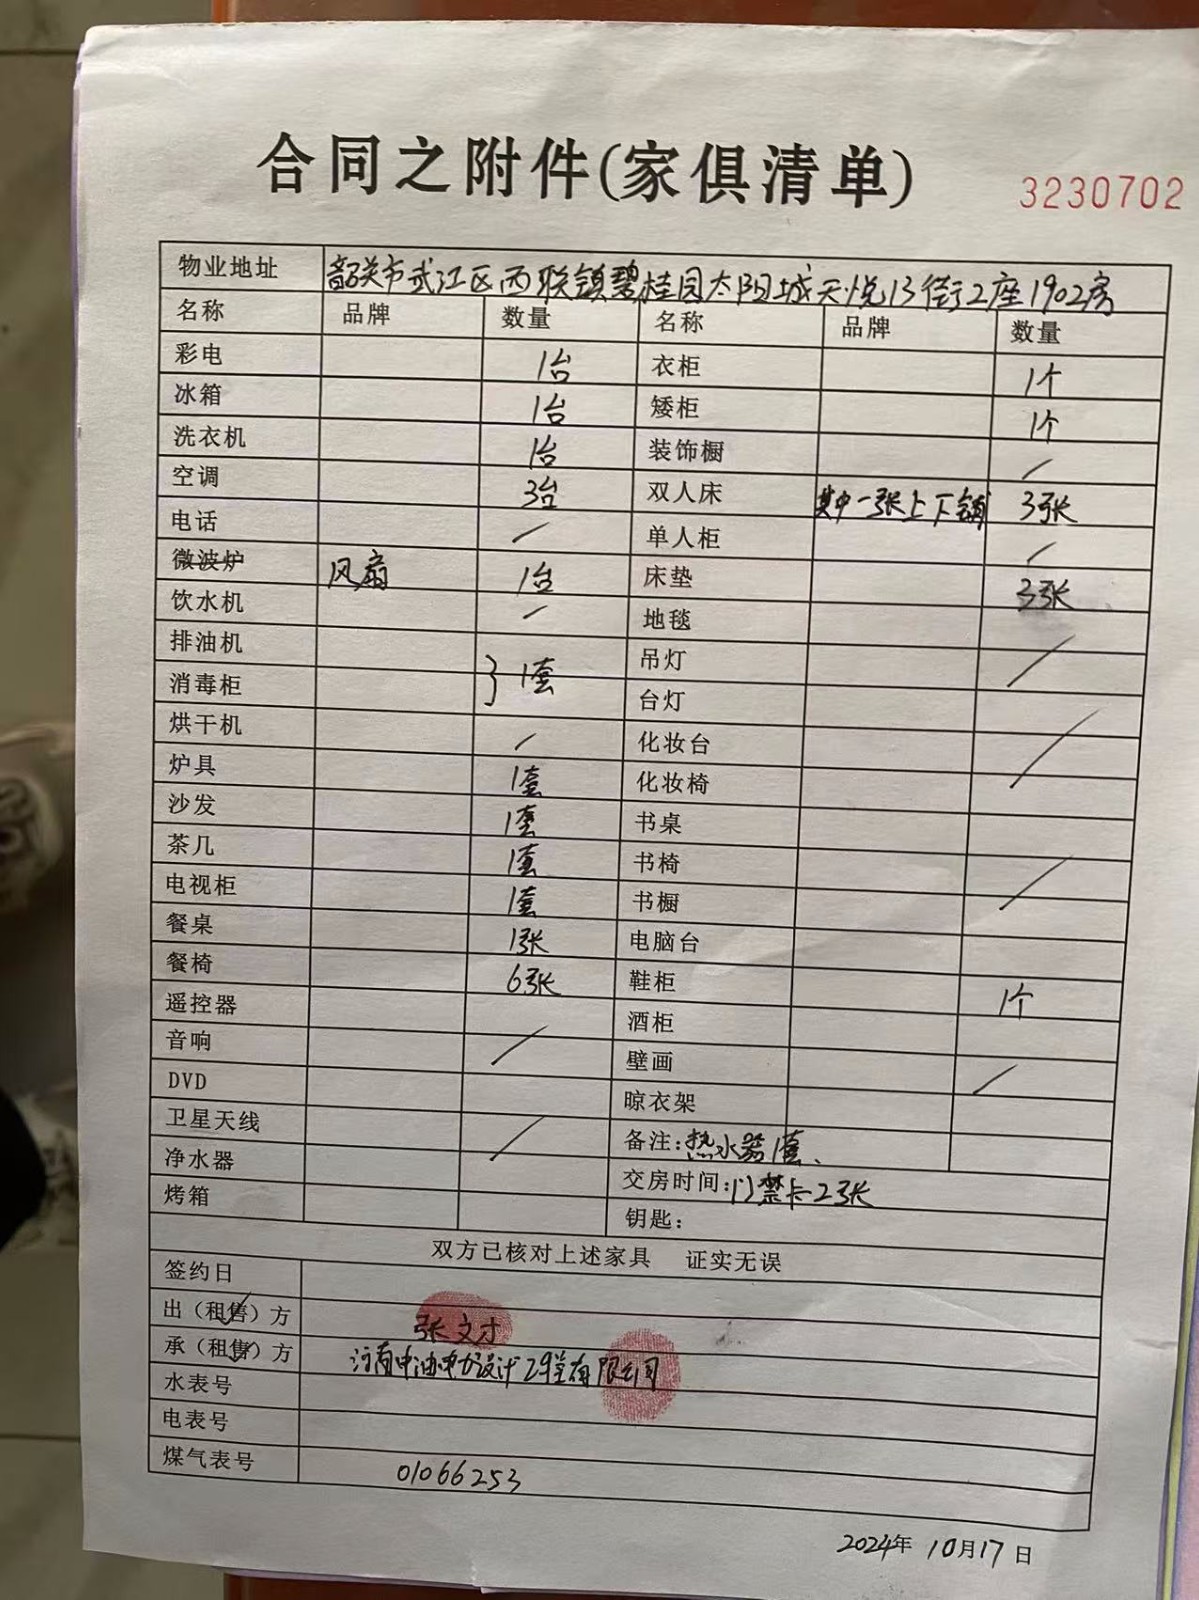 合同之附件(家俱清单)
3230702
物业地址 韶关市武江区西联镇碧桂园太阳城天悦13街2座1902房
名称 品牌 数量 名称 品牌 数量
彩电 1台 衣柜 1个
冰箱 1台 矮柜 1个
洗衣机 1台 装饰橱 /
空调 3台 双人床 其中一张上下铺 3张
电话 / 单人柜 /
微波炉 风扇 1台 床垫 3张
饮水机 / 地毯
排油机 } 1套 吊灯 /
消毒柜 台灯
烘干机 / 化妆台 /
炉具 1套 化妆椅
沙发 1套 书桌
茶几 1套 书椅 /
电视柜 1套 书橱
餐桌 1张 电脑台
餐椅 6张 鞋柜 1个
遥控器 酒柜
音响 / 壁画 /
DVD 晾衣架
卫星天线 / 备注:热水器1套、
净水器 交房时间:门禁卡2张
烤箱 钥匙:
双方已核对上述家具 证实无误
签约日
出(租售)方 张文才
承(租售)方 河南中油电力设计工程有限公司
水表号
电表号
煤气表号 01066253
2024年 10月17日